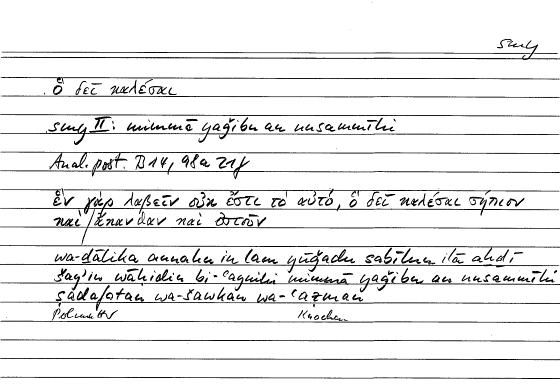 smy
ὃ δεῖ καλέσαι
smy II: mimmā yaǧibu an nusammīhi
Anal. post. B 14, 98a 21f
ἓν γὰρ λαβεῖν οὐκ ἔστι τὸ αὐτό, ὃ δεῖ καλέσαι σήπιον
καὶ / ἄκανθαν καὶ ὀστοῦν
wa-ḏālika annahu in lam yūǧadu sabīlun ilā aḫḏi
šayʾin wāḥidin bi-ʿaynihi mimmā yaǧibu an nusammīhi
ṣadafatan wa-šawkan wa-ʿaẓman
Knochen